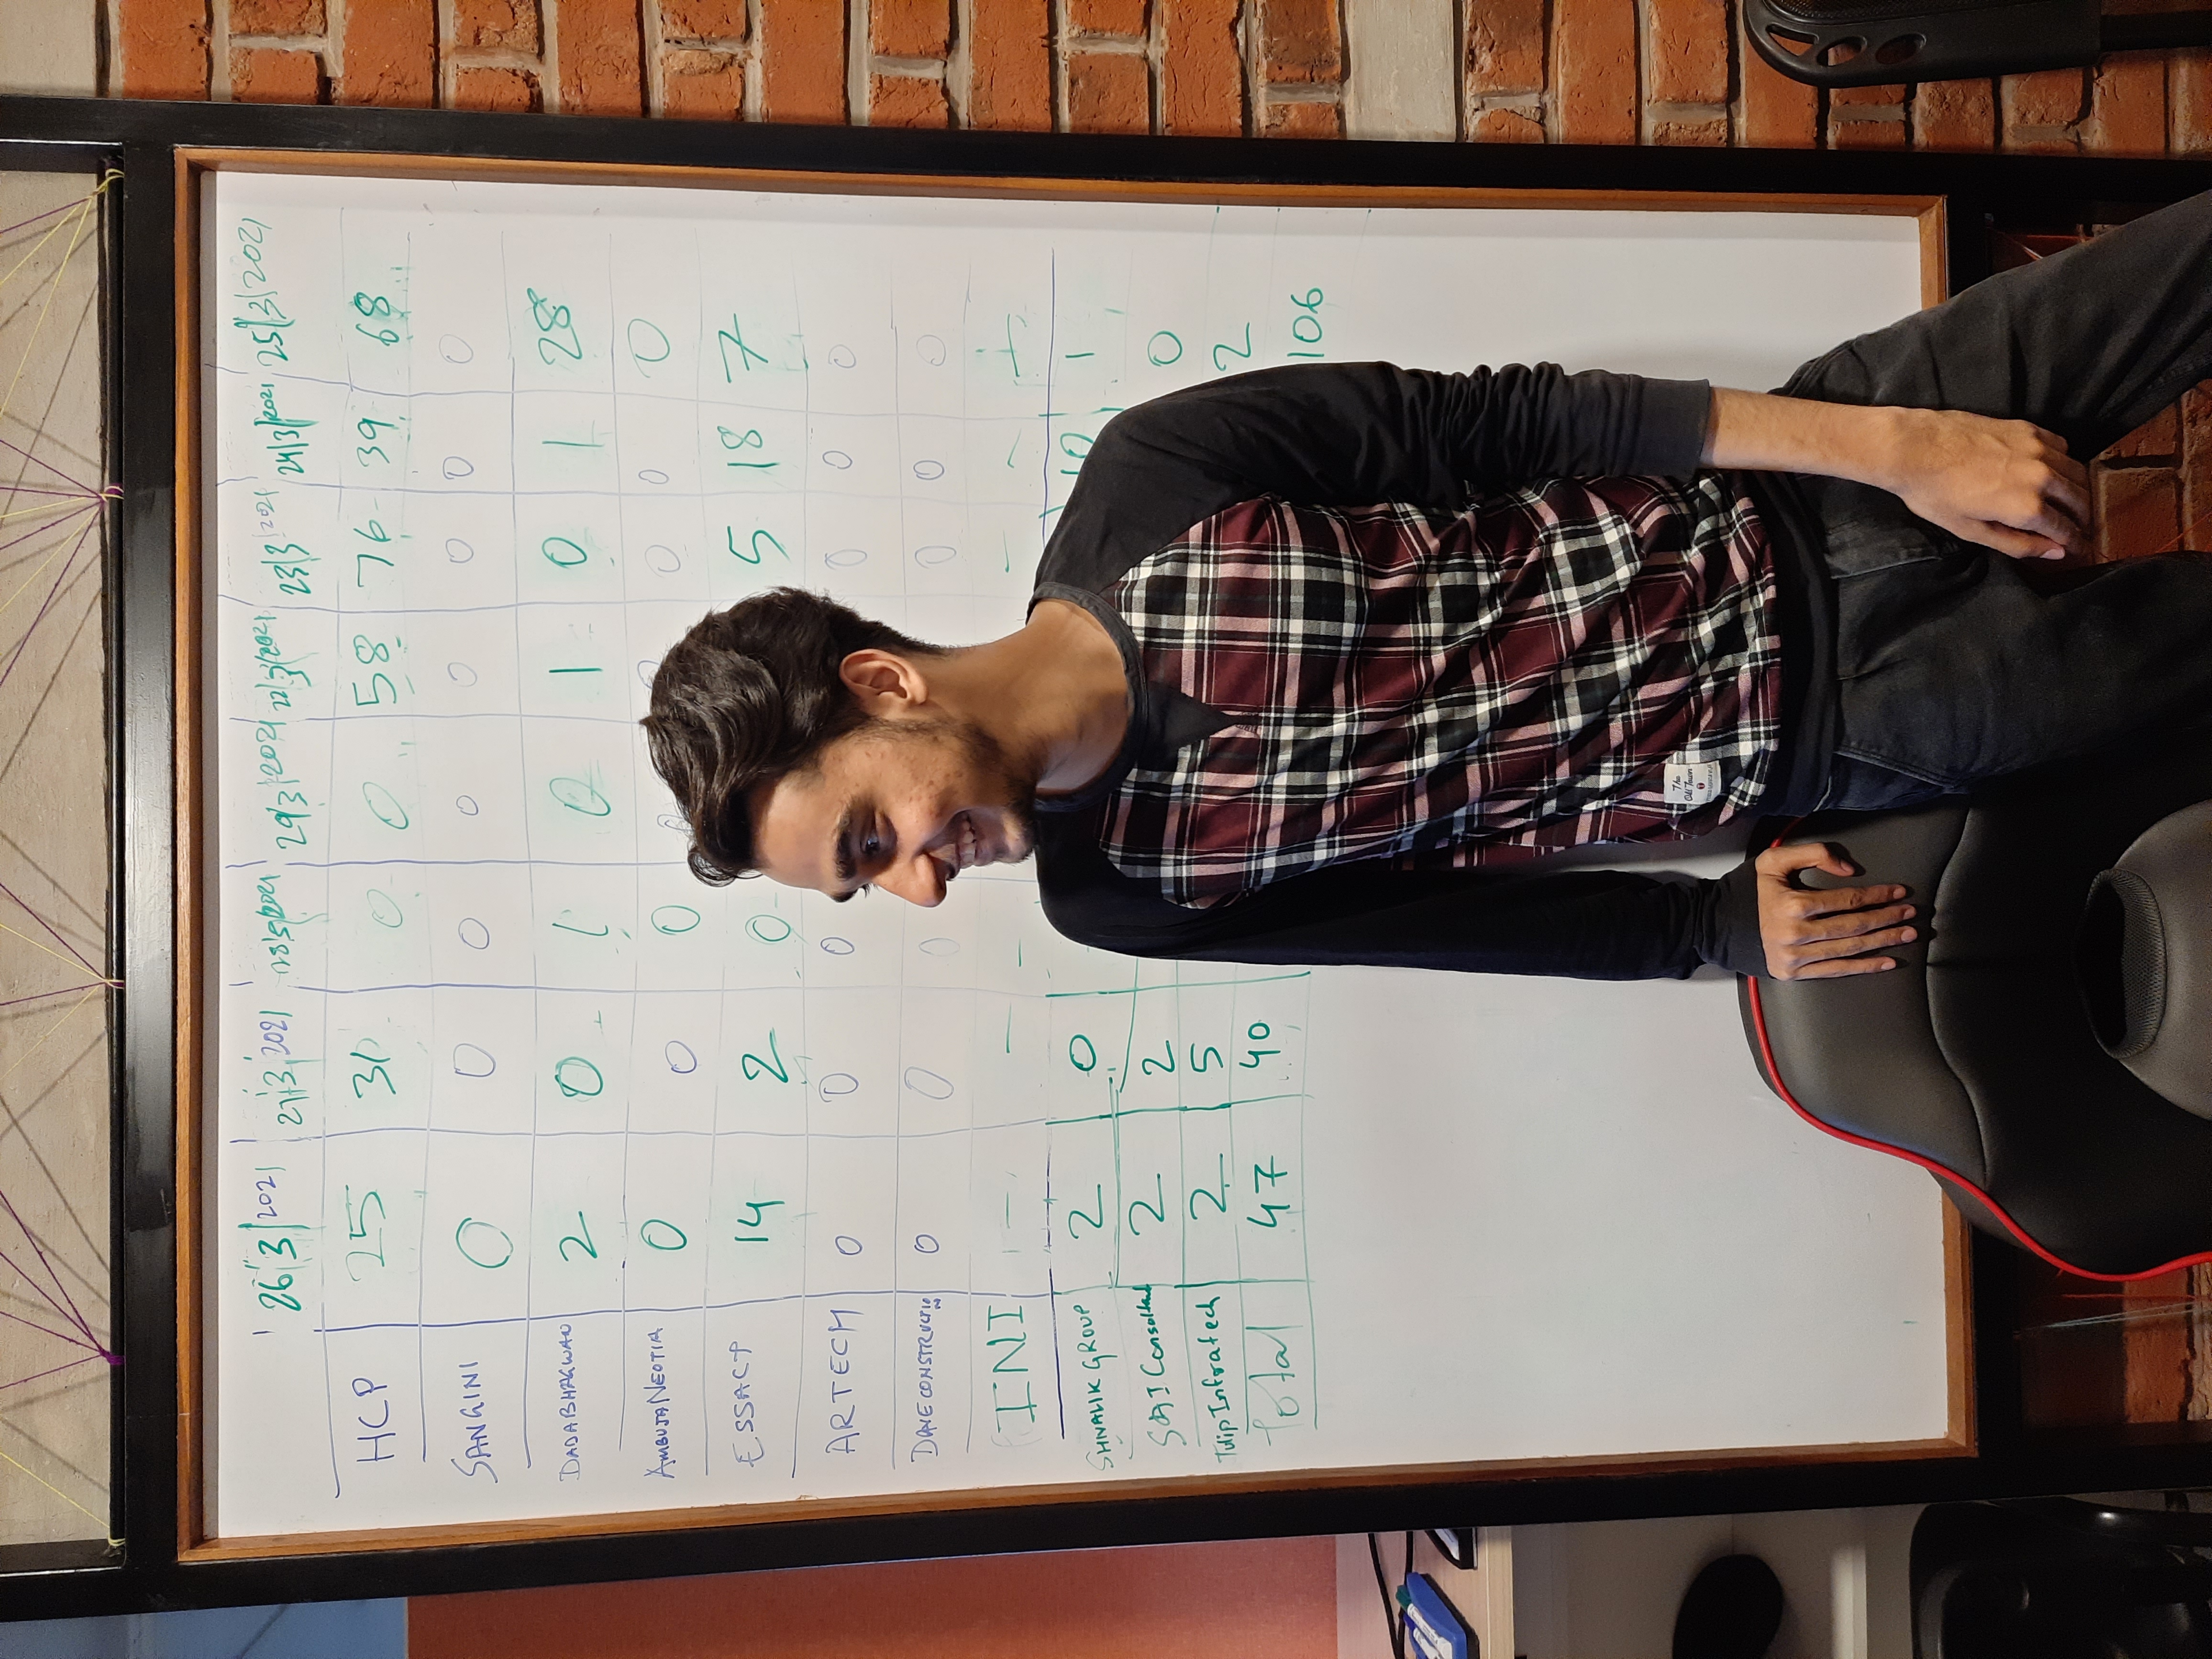 26/3/2021 27/3/2021 28/3/2021 29/3/2021 22/3/2021 23/3/2021 24/3/2021 25/3/2021
HCP 25 31 0 0 58 76 39 68
SANGINI 0 0 0 0 0 0 0 0
DADABHAGWAN 2 0 1 0 1 0 1 28
AMBUJA NEOTIA 0 0 0 0 0 0 0
ESSACP 14 2 0 5 18 7
ARTECH 0 0 0 0 0 0
DAVE CONSTRUCTION 0 0 0 0 0 0
INI — — — — — —
SHIVALIK GROUP 2 0 10 1
SAI Consultant 2 2 0
Tulip Infratech 2 5 2
Total 47 40 106
The
Old Town